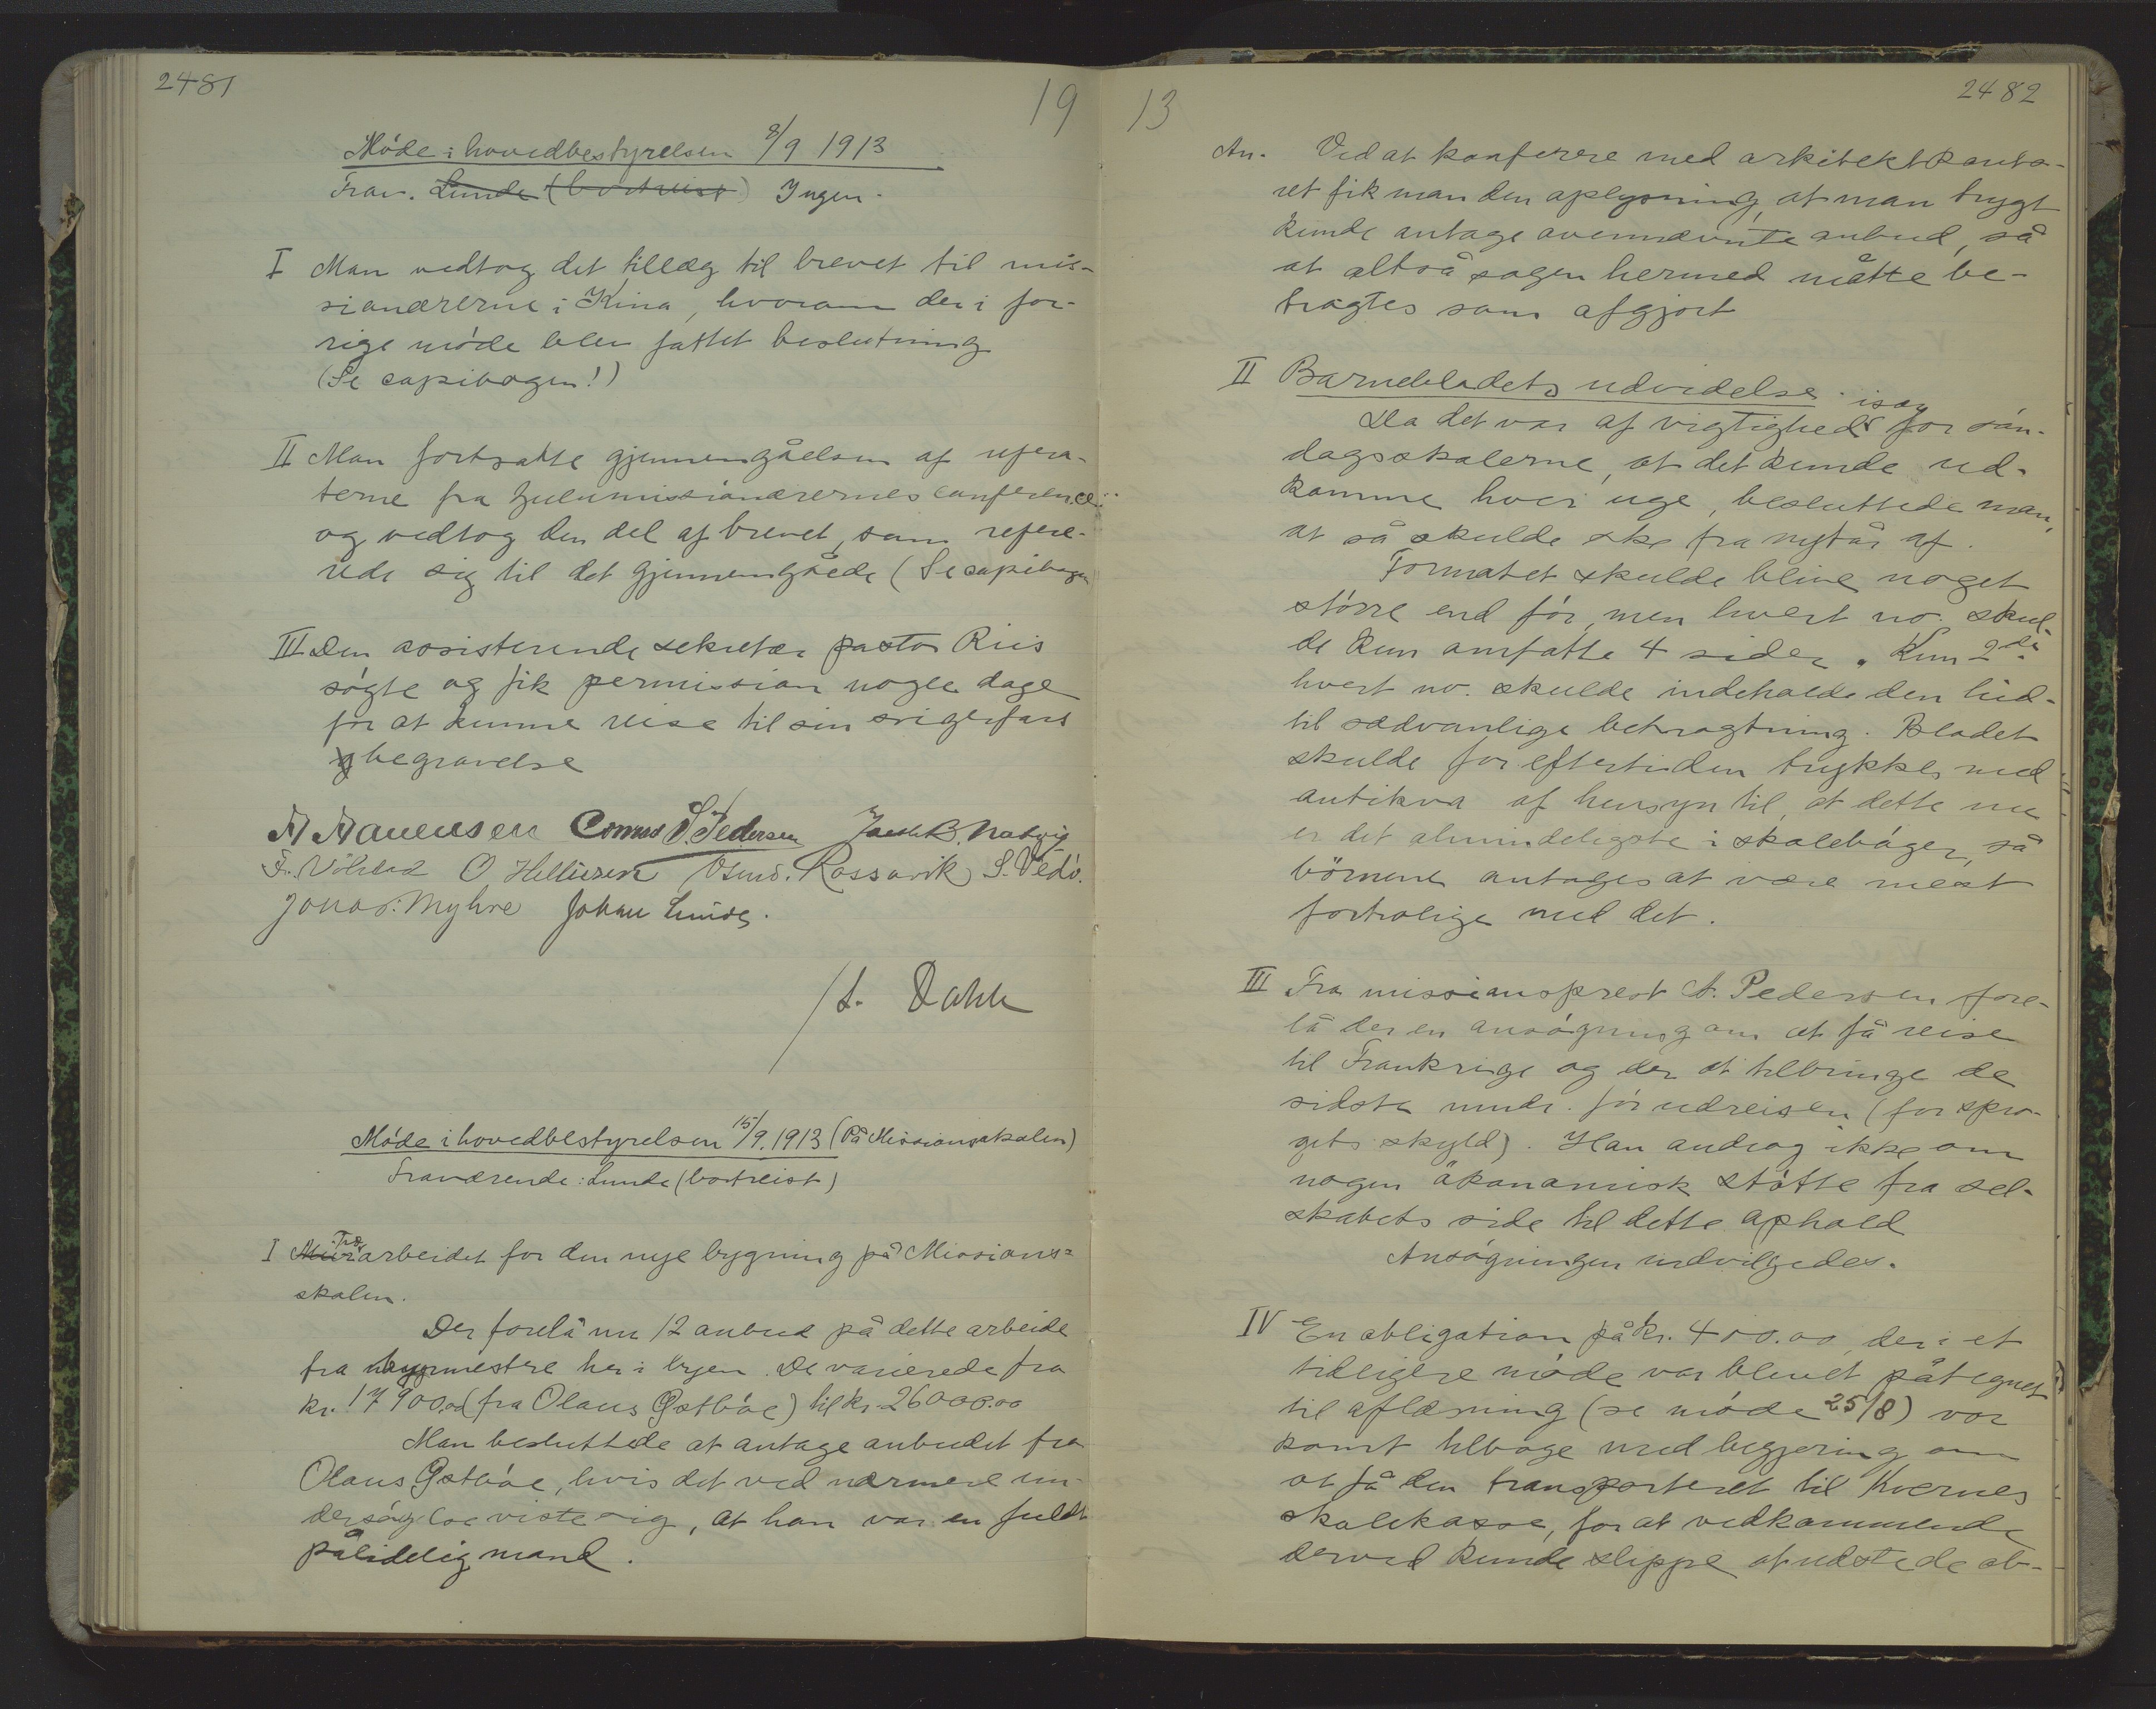 2481
19
Møde i hovedbestyrelsen 8/9 1913
Frav. Lunde (bortreist) Ingen.
I Man vedtog det tillæg til brevet til mis-
sionærerne i Kina, hvorom der i for-
rige møde blev fattet beslutning
(Se copibogen!)
II Man fortsatte gjennemgåelsen af refera-
terne fra Zulumissionærernes conference
og vedtog den del af brevet, som refere-
rede sig til det gjennemgåede (Se copibogen
III Den assisterende sekretær pastor Riis
søgte og fik permission nogle dage
for at kunne reise til sin svigerfars
begravelse
Comus S. Pedersen Jacob B. Natvig
O Helliesen Rossavik S. Vedø.
Jonas Myhre Johan Lunde.
/L. Dahle
Møde i hovedbestyrelsen 15/9. 1913 (På Missionsskolen)
Fraværende: Lunde (bortreist)
Træ
I Murarbeidet for den nye bygning på Missions=
skolen.
Der forelå nu 12 anbud på dette arbeide
fra bygmestre her i byen. De varierede fra
kr. 17900.00 (fra Olaus Østbøe) til kr. 26000.00
Man besluttede at antage anbudet fra
Olaus Østbøe, hvis det ved nærmere un-
dersøgelse viste sig, at han var en fuldt
pålidelig mand.
13
2482
An. Ved at konferere med arkitektkonto-
ret fik man den oplysning, at man trygt
kunde antage ovennævnte anbud, så
at altså sagen hermed måtte be-
tragtes som afgjort
II Barnebladets udvidelse.
især
Da det var af vigtighed for søn-
dagsskolerne, at det kunde ud-
komme hver uge, besluttede man,
at så skulde ske fra nytår af.
Formatet skulde blive noget
større end før, men hvert no. skul-
de kun omfatte 4 sider. Kun 2det
hvert no. skulde indeholde den hid-
til sædvanlige betragtning. Bladet
skulde for eftertiden trykkes med
antikva af hensyn til, at dette nu
er det almindeligste i skolebøger, så
børnene antages at være mest
fortrolige med det.
III Fra missionsprest A. Pedersen fore-
lå der en ansøgning om at få reise
til Frankrige og der at tilbringe de
sidste mndr. før udreisen (for spro-
gets skyld). Han androg ikke om
nogen økonomisk støtte fra sel-
skabets side til dette ophold
Ansøgningen indvilgedes.
IV En obligation på kr. 400.00, der i et
tidligere møde var blevet påtegnet
til aflæsning (se møde 25/8) var
komt tilbage med begjering om
at få den transporteret til Kvernes
skolekasse, for at vedkommende
derved kunde slippe at udstede ob-